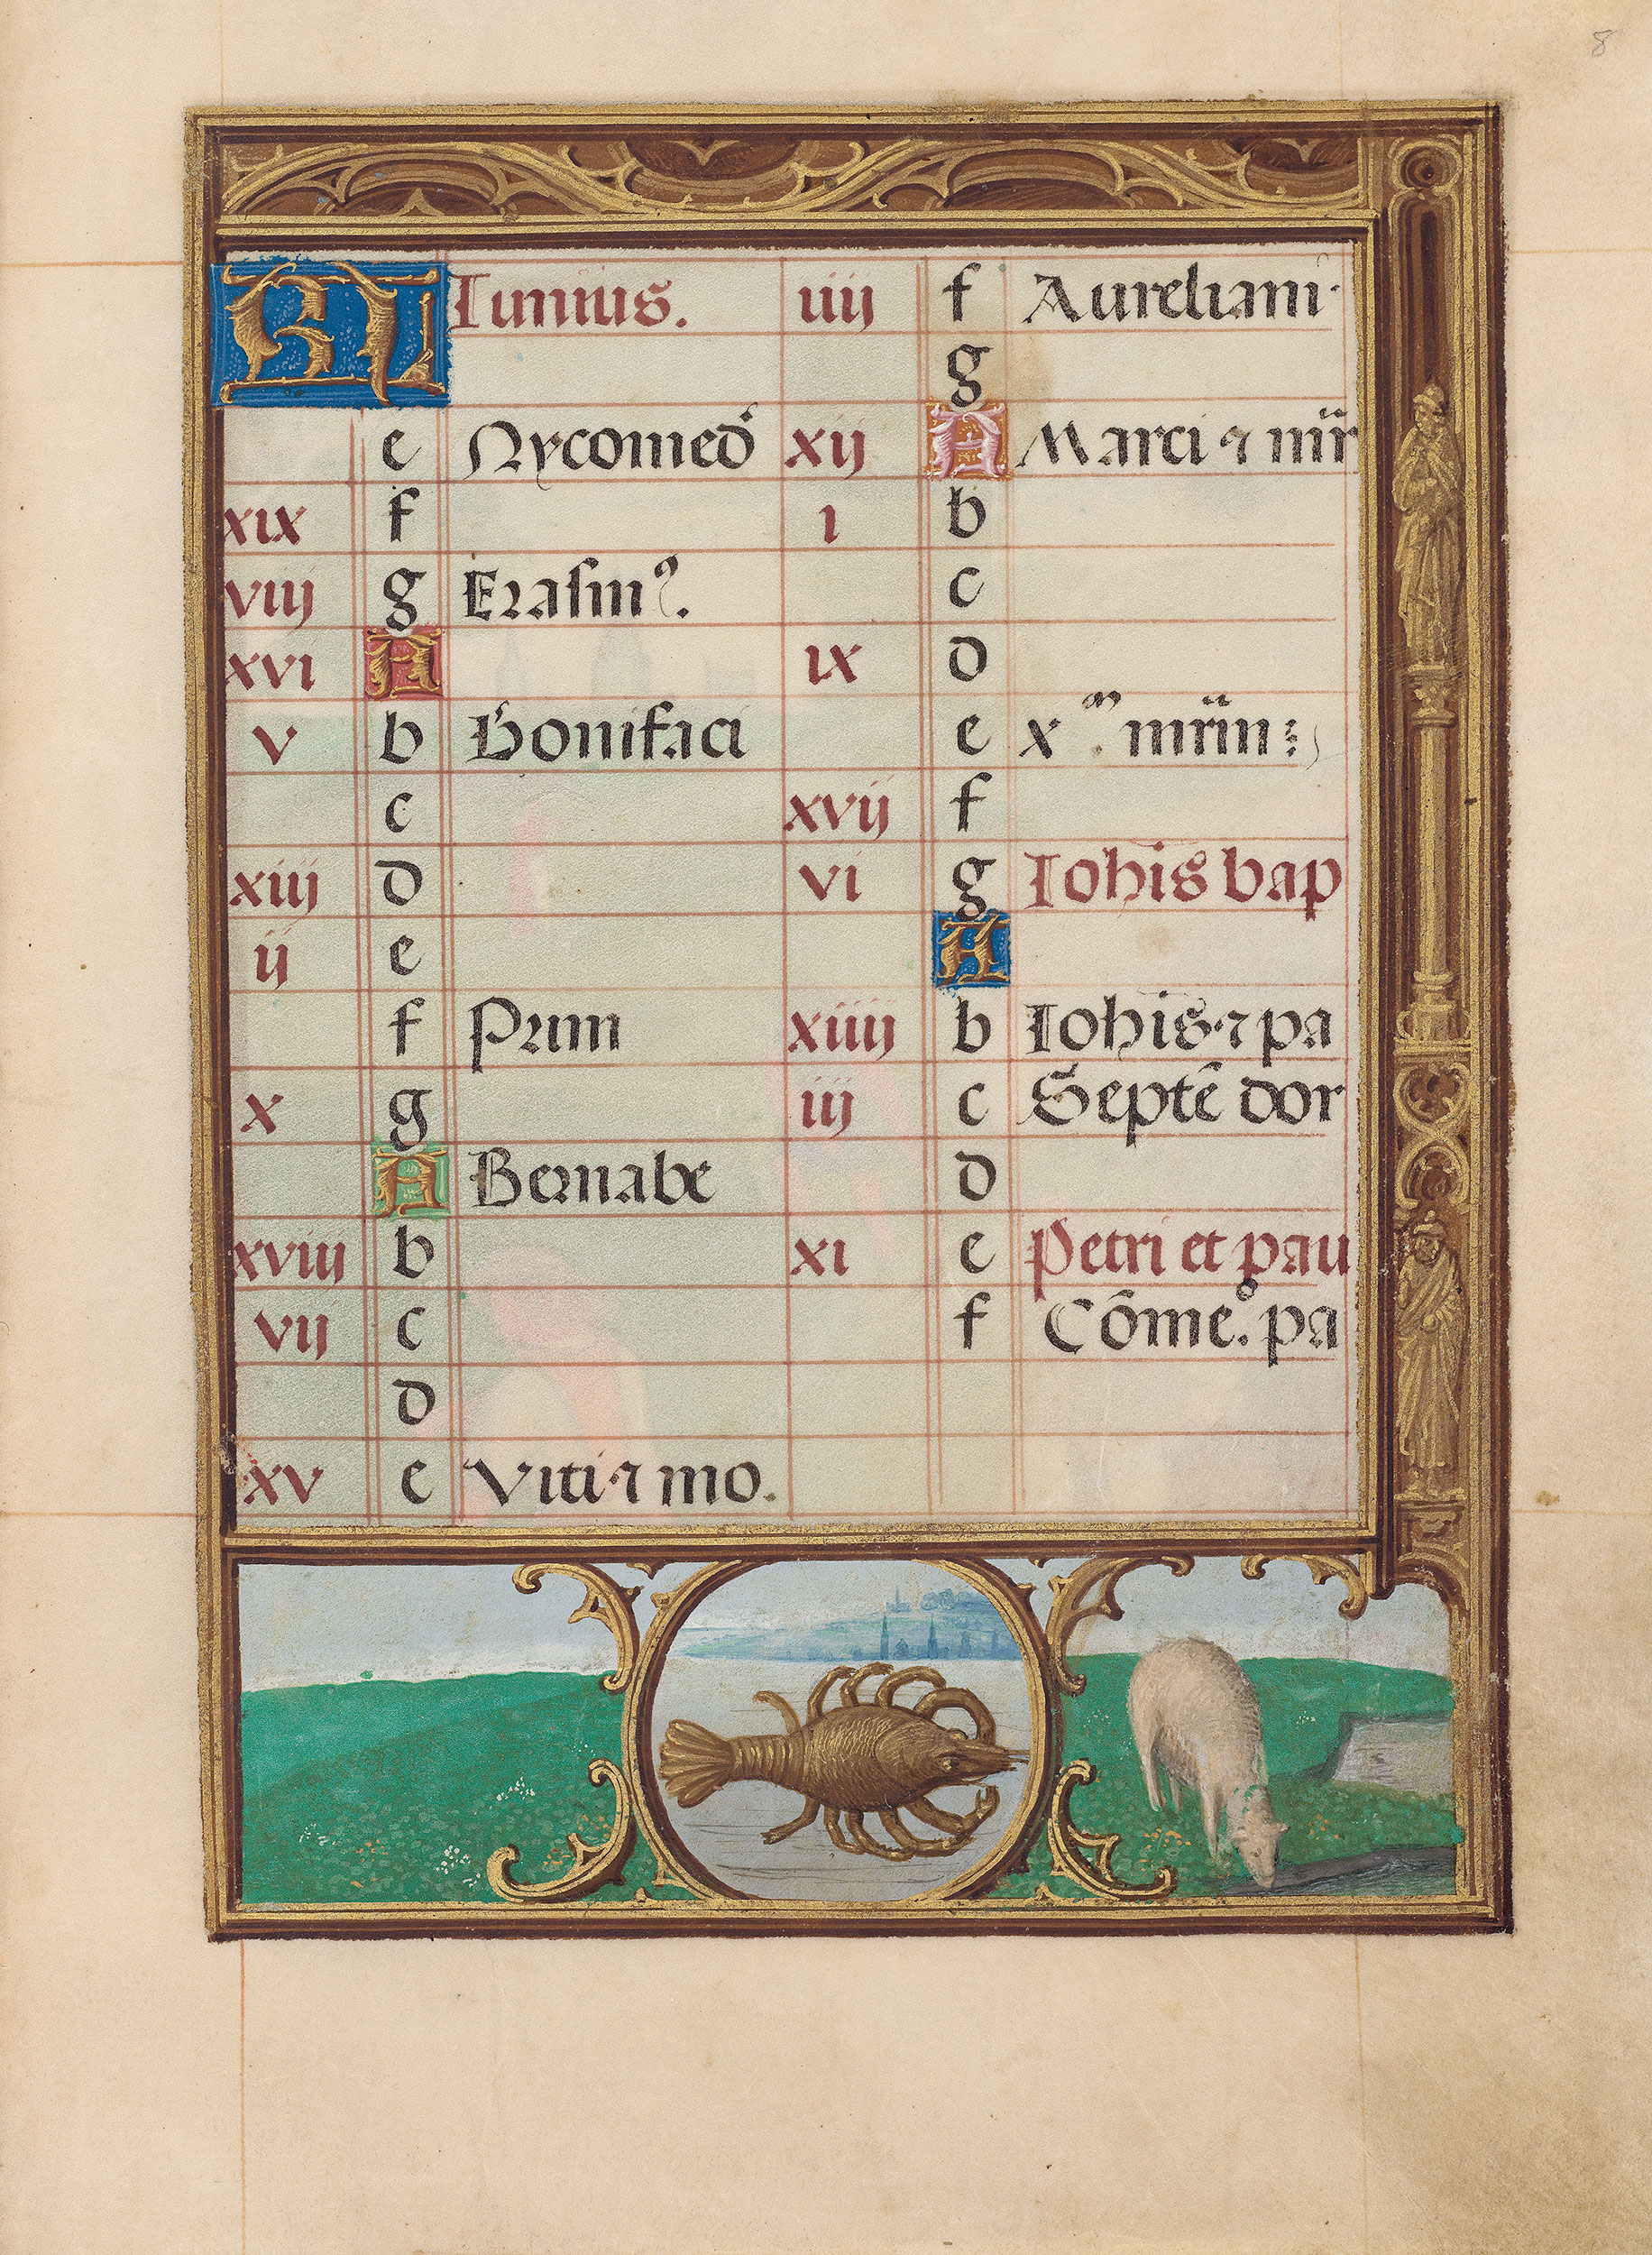 8
KL Iunius.
e Nycomed
xix f
viij g Erasm9.
xvi A
v b Bonifaci
c
xiij d
ij e
f Prim
x g
A Bernabe
xviij b
vij c
d
xv e Viti ⁊ mo.
iiij f Aureliani
g
xij A Marci ⁊ mr̄
i b
c
ix d
e x m mr̄m
xvij f
vi g Iohis bap
A
xiiij b Iohis ⁊ pa
iij c Septē dor
d
xi e Petri et pau
f Cōme. pa